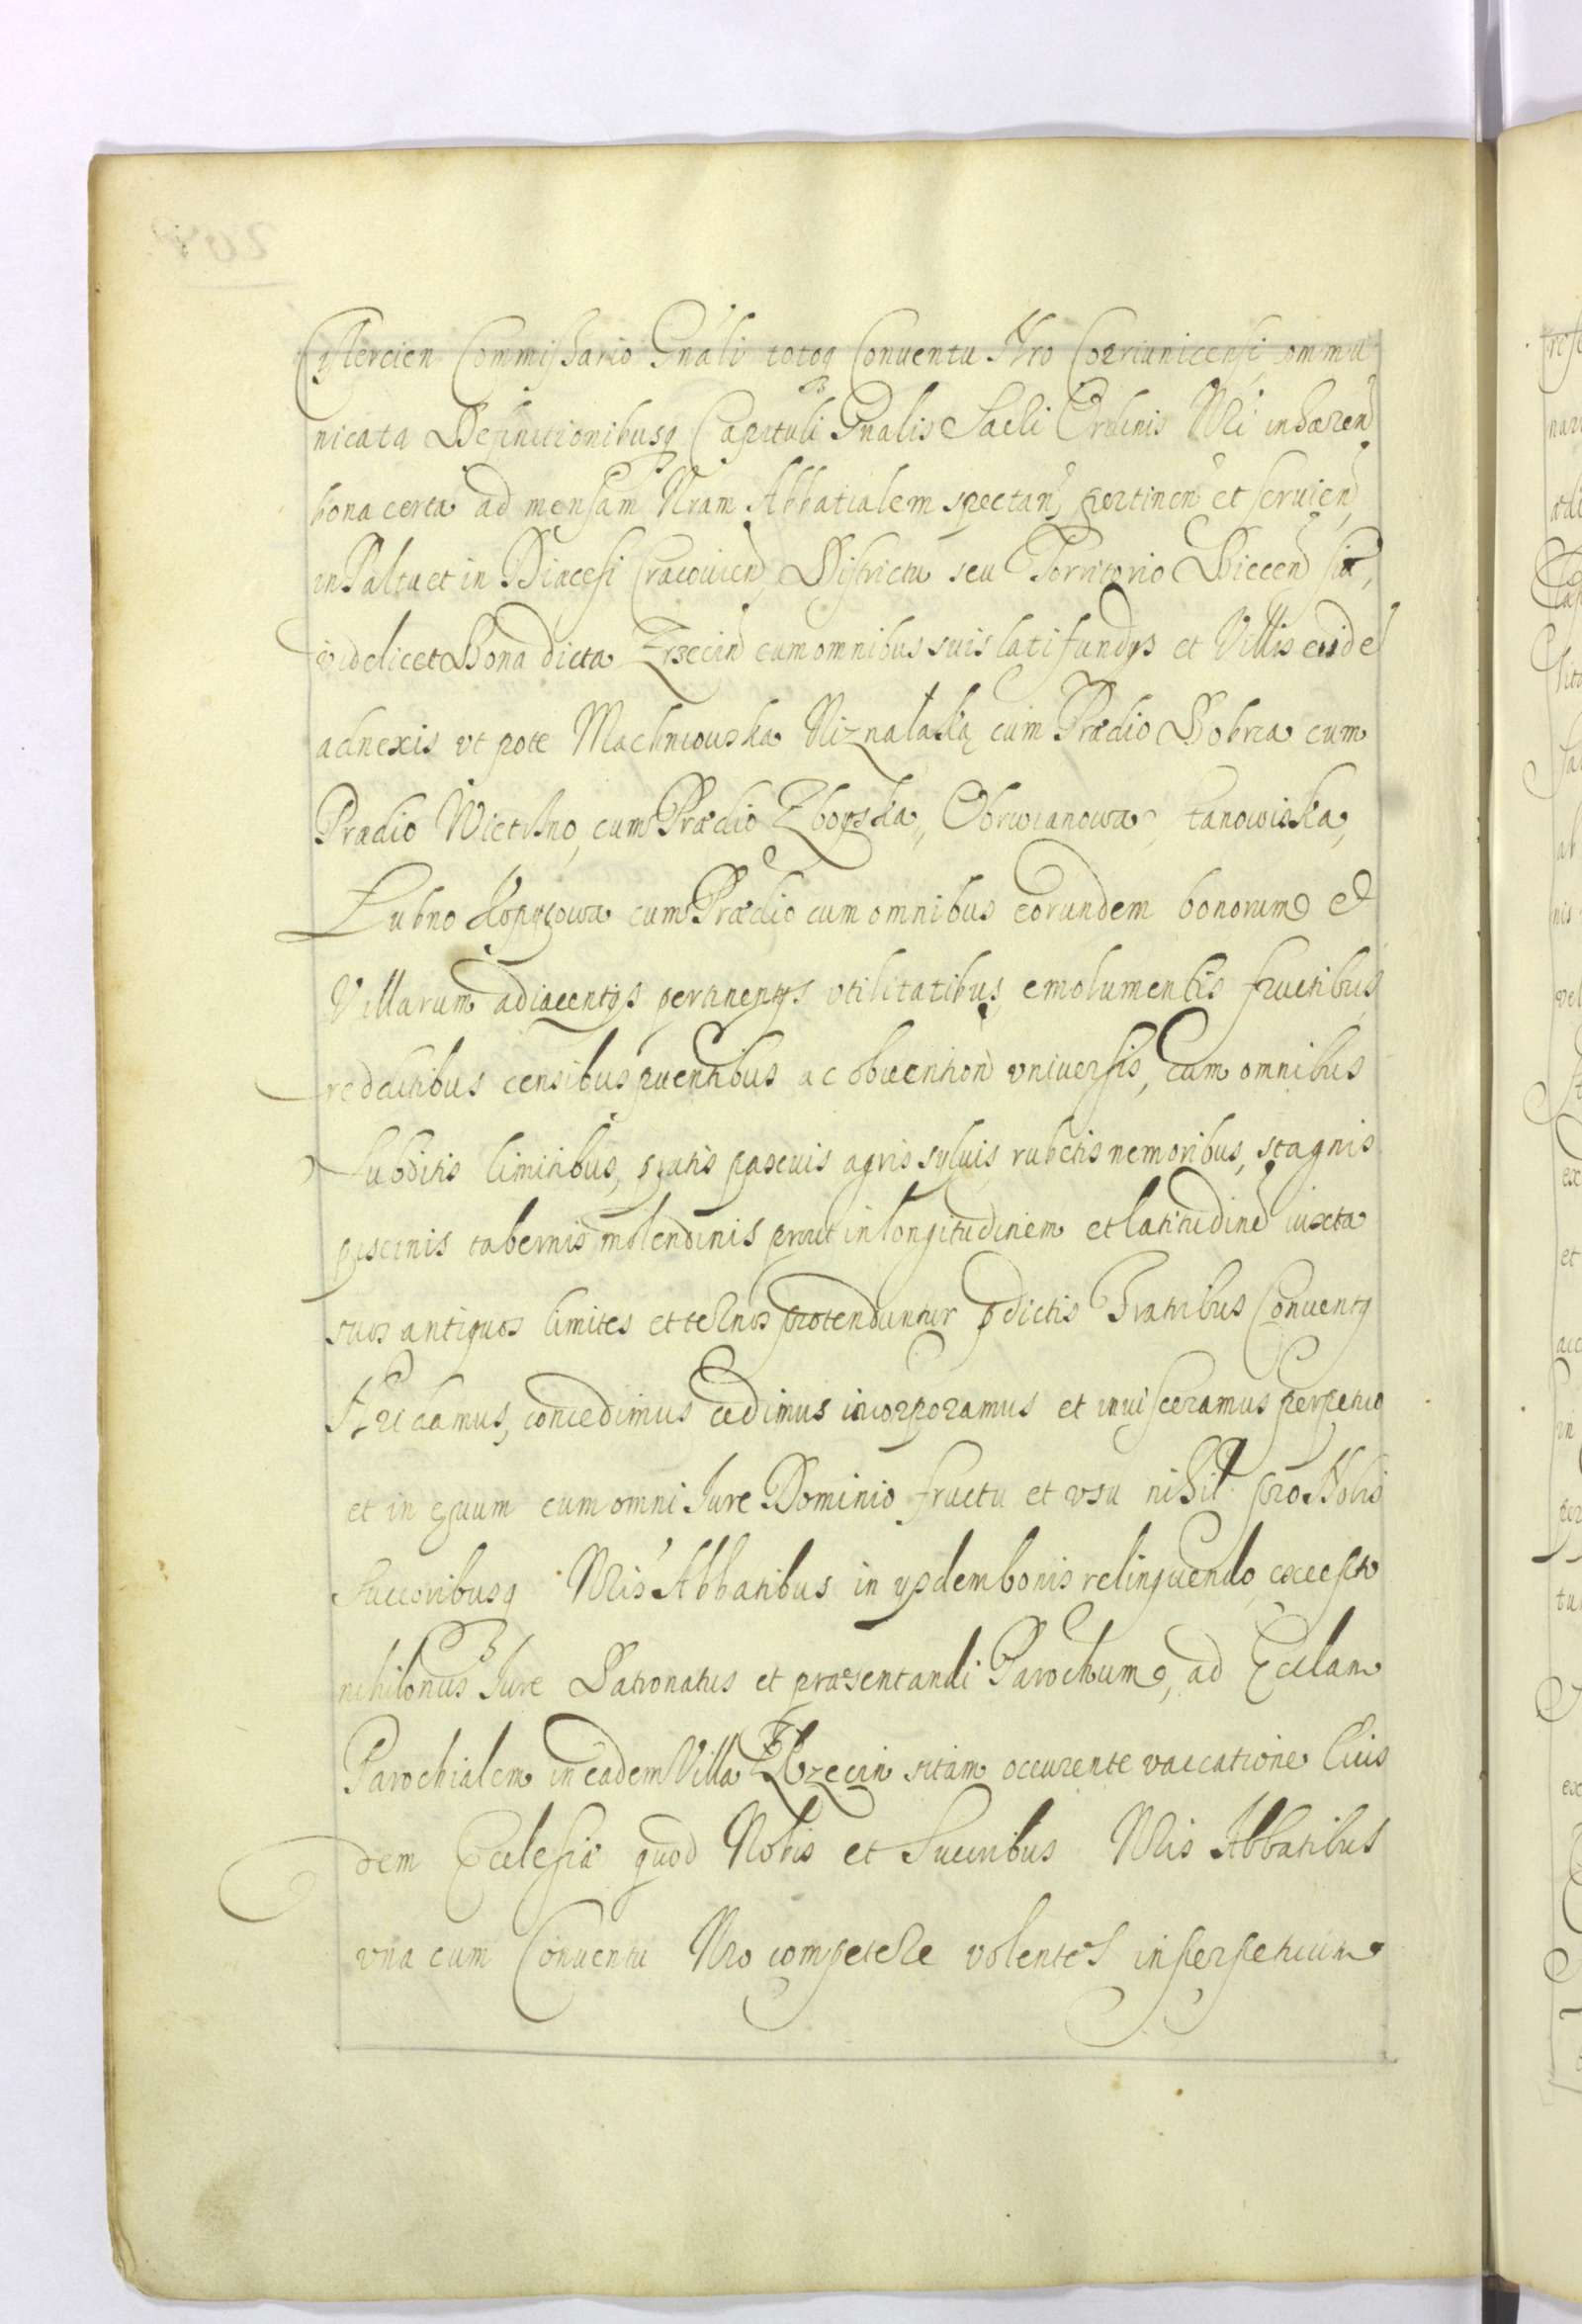 Cistercien Commissario Gnali totoq Conuentu Nro Coprziunicensi commu
nicata Definitionibusq Capituli Gnalis Sacri Ordinis Nri inhæren
bona certa ad mensam Nram Abbatialem spectan, pertinen et seruien,
in Paltu et in Diæcesi Cracouien, Districtu seu Territorio Biecen sita,
videlicet Bona dicta Zrzecin cum omnibus suis latifundys et Villis eisde
adnexis vt pote Machnowska Niznalaką cum Prædio Dobra cum
Prædio Wietrzno, cum Prædio Zboyska, Obrwianowa, Łanowiska,
Łubno Kopytowa cum Prædio cum omnibus eorundem bonorum et
Villarum adiacentys pertinentys vtilitatibus, emolumentis fructibus,
redditibus censibus puentibus ac obuention vniuersis, cum omnibus
subditis limitibus, pratis pascuis agris syluis rubetis nemoribus, stagnis
piscinis tabernis molendinis prout in longitudinem et latitudine iuxta
suos antiquos limites et termos protenduntur pdictis Fratribus Conuentq
Nri damus, concedimus cedimus incorporamus et inuisceramus perpetuo
et in æuum cum omni Jure Dominio fructu et vsu nihil pro Nobis
Succoribusq Nris Abbatibus in ysdem bonis relinquendo, excepto
nihilonus Jure Patronatus et præsentandi Parochum, ad Eccle͠am
Parochialem in eadem Villa Zrzecin sitam occurente vaccatione Eius
dem Ecclesiæ quod Nobis et Succoribus Nris Abbatibus
vna cum Conuentu Nro competere volentes in perpetuum